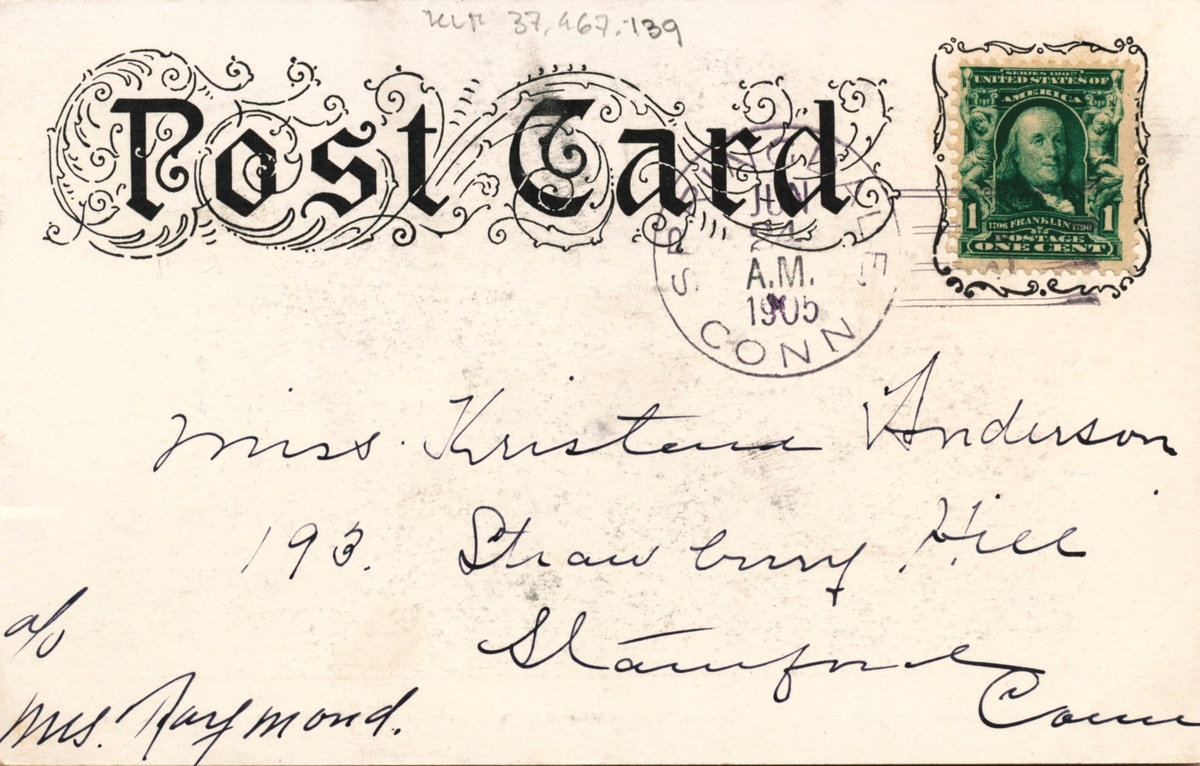 37.467.139
Post Card
SERIES 1902
UNITED STATES OF
AMERICA
1 1706 FRANKLIN 1790 1
POSTAGE
ONE CENT
SPRINGDALE
JUN
24
A.M.
1905
CONN
Miss Kristena Anderson
193. Strawbury Hill
Stamford
Conn
c/o
Mrs. Raymond.